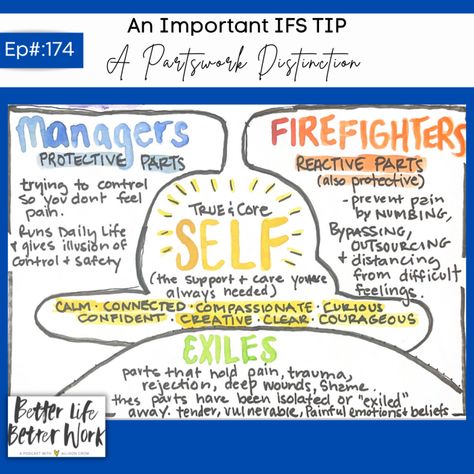 An Important IFS TIP
Ep#:174
A Partswork Distinction
Managers
PROTECTIVE PARTS
trying to control
so you dont feel
pain.
Runs Daily Life
& gives illusion of
control & safety
FIREFIGHTERS
REACTIVE PARTS
(also protective)
- prevent pain
by NUMBING,
BYPASSING,
OUTSOURCING
& distancing
from difficult
feelings.
TRUE & Core
SELF
(the support & care you
always needed)
CALM · CONNECTED · COMPASSIONATE · CURIOUS
CONFIDENT · CREATIVE · CLEAR · COURAGEOUS
EXILES
parts that hold pain, trauma,
rejection, deep wounds, Shame.
thes parts have been isolated or "exiled"
away. tender, vulnerable, Painful emotions & beliefs.
Better Life
Better Work
A PODCAST WITH ALLISON CROW